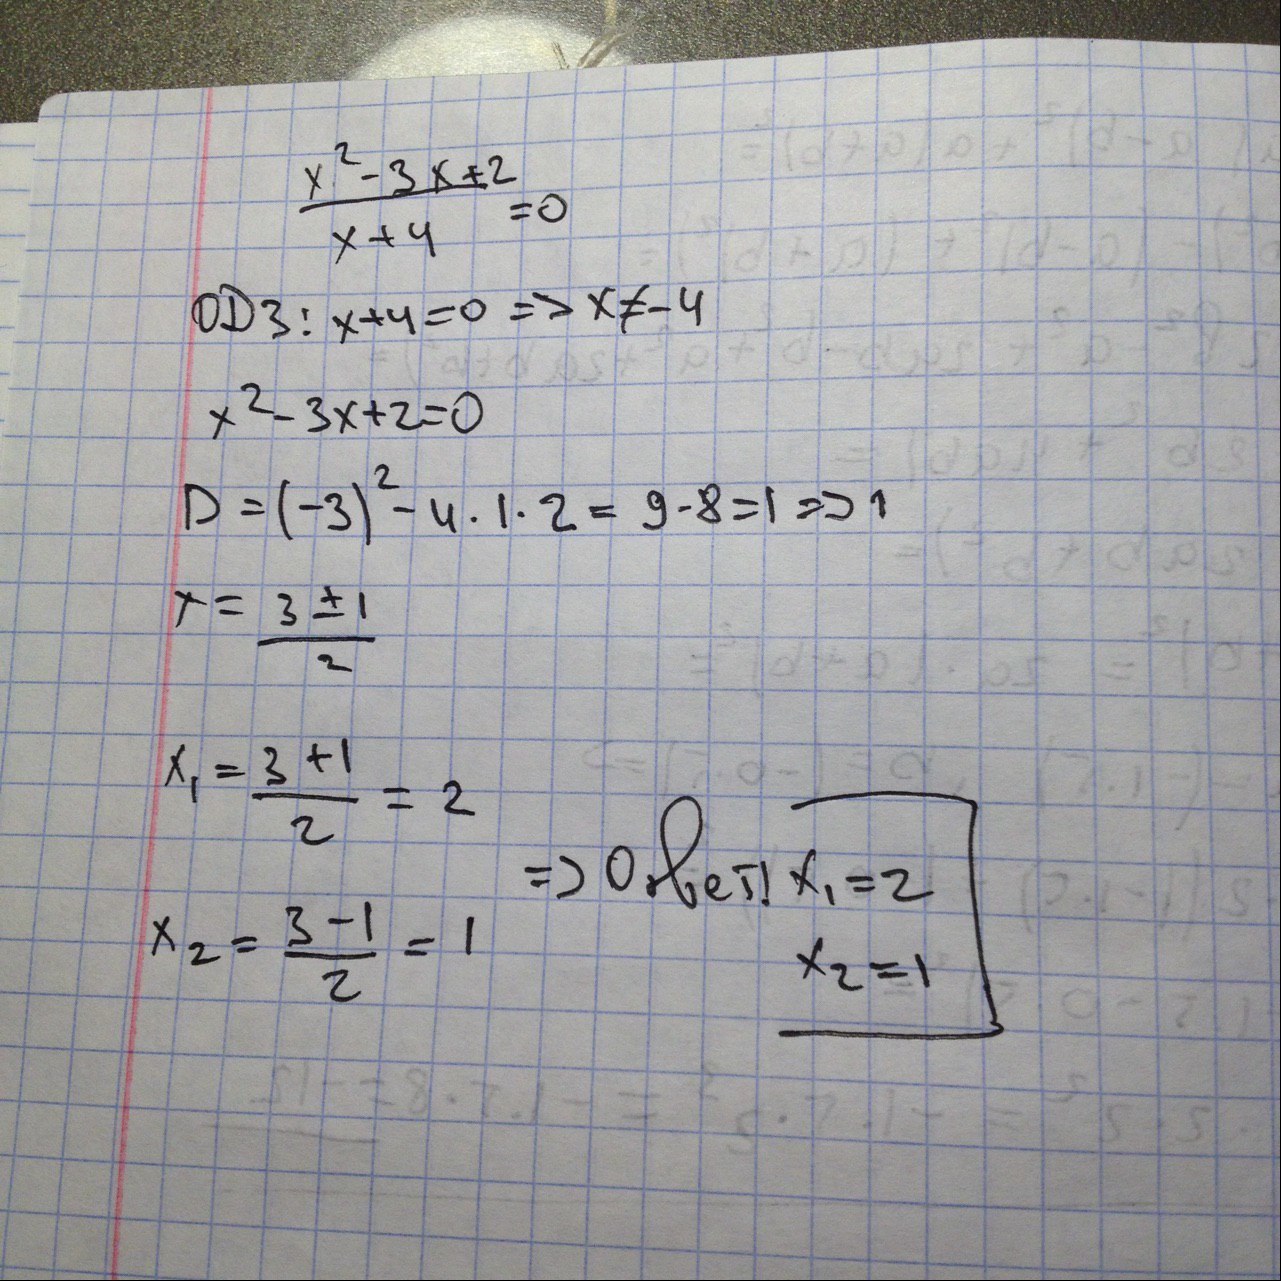 x² - 3x + 2
x + 4 = 0
ОДЗ: x + 4 = 0 => x ≠ -4
x² - 3x + 2 = 0
D = (-3)² - 4 · 1 · 2 = 9 - 8 = 1 => 1
x = 3 ± 1 / 2
x₁ = 3 + 1 / 2 = 2
x₂ = 3 - 1 / 2 = 1
=> Ответ! x₁ = 2
x₂ = 1